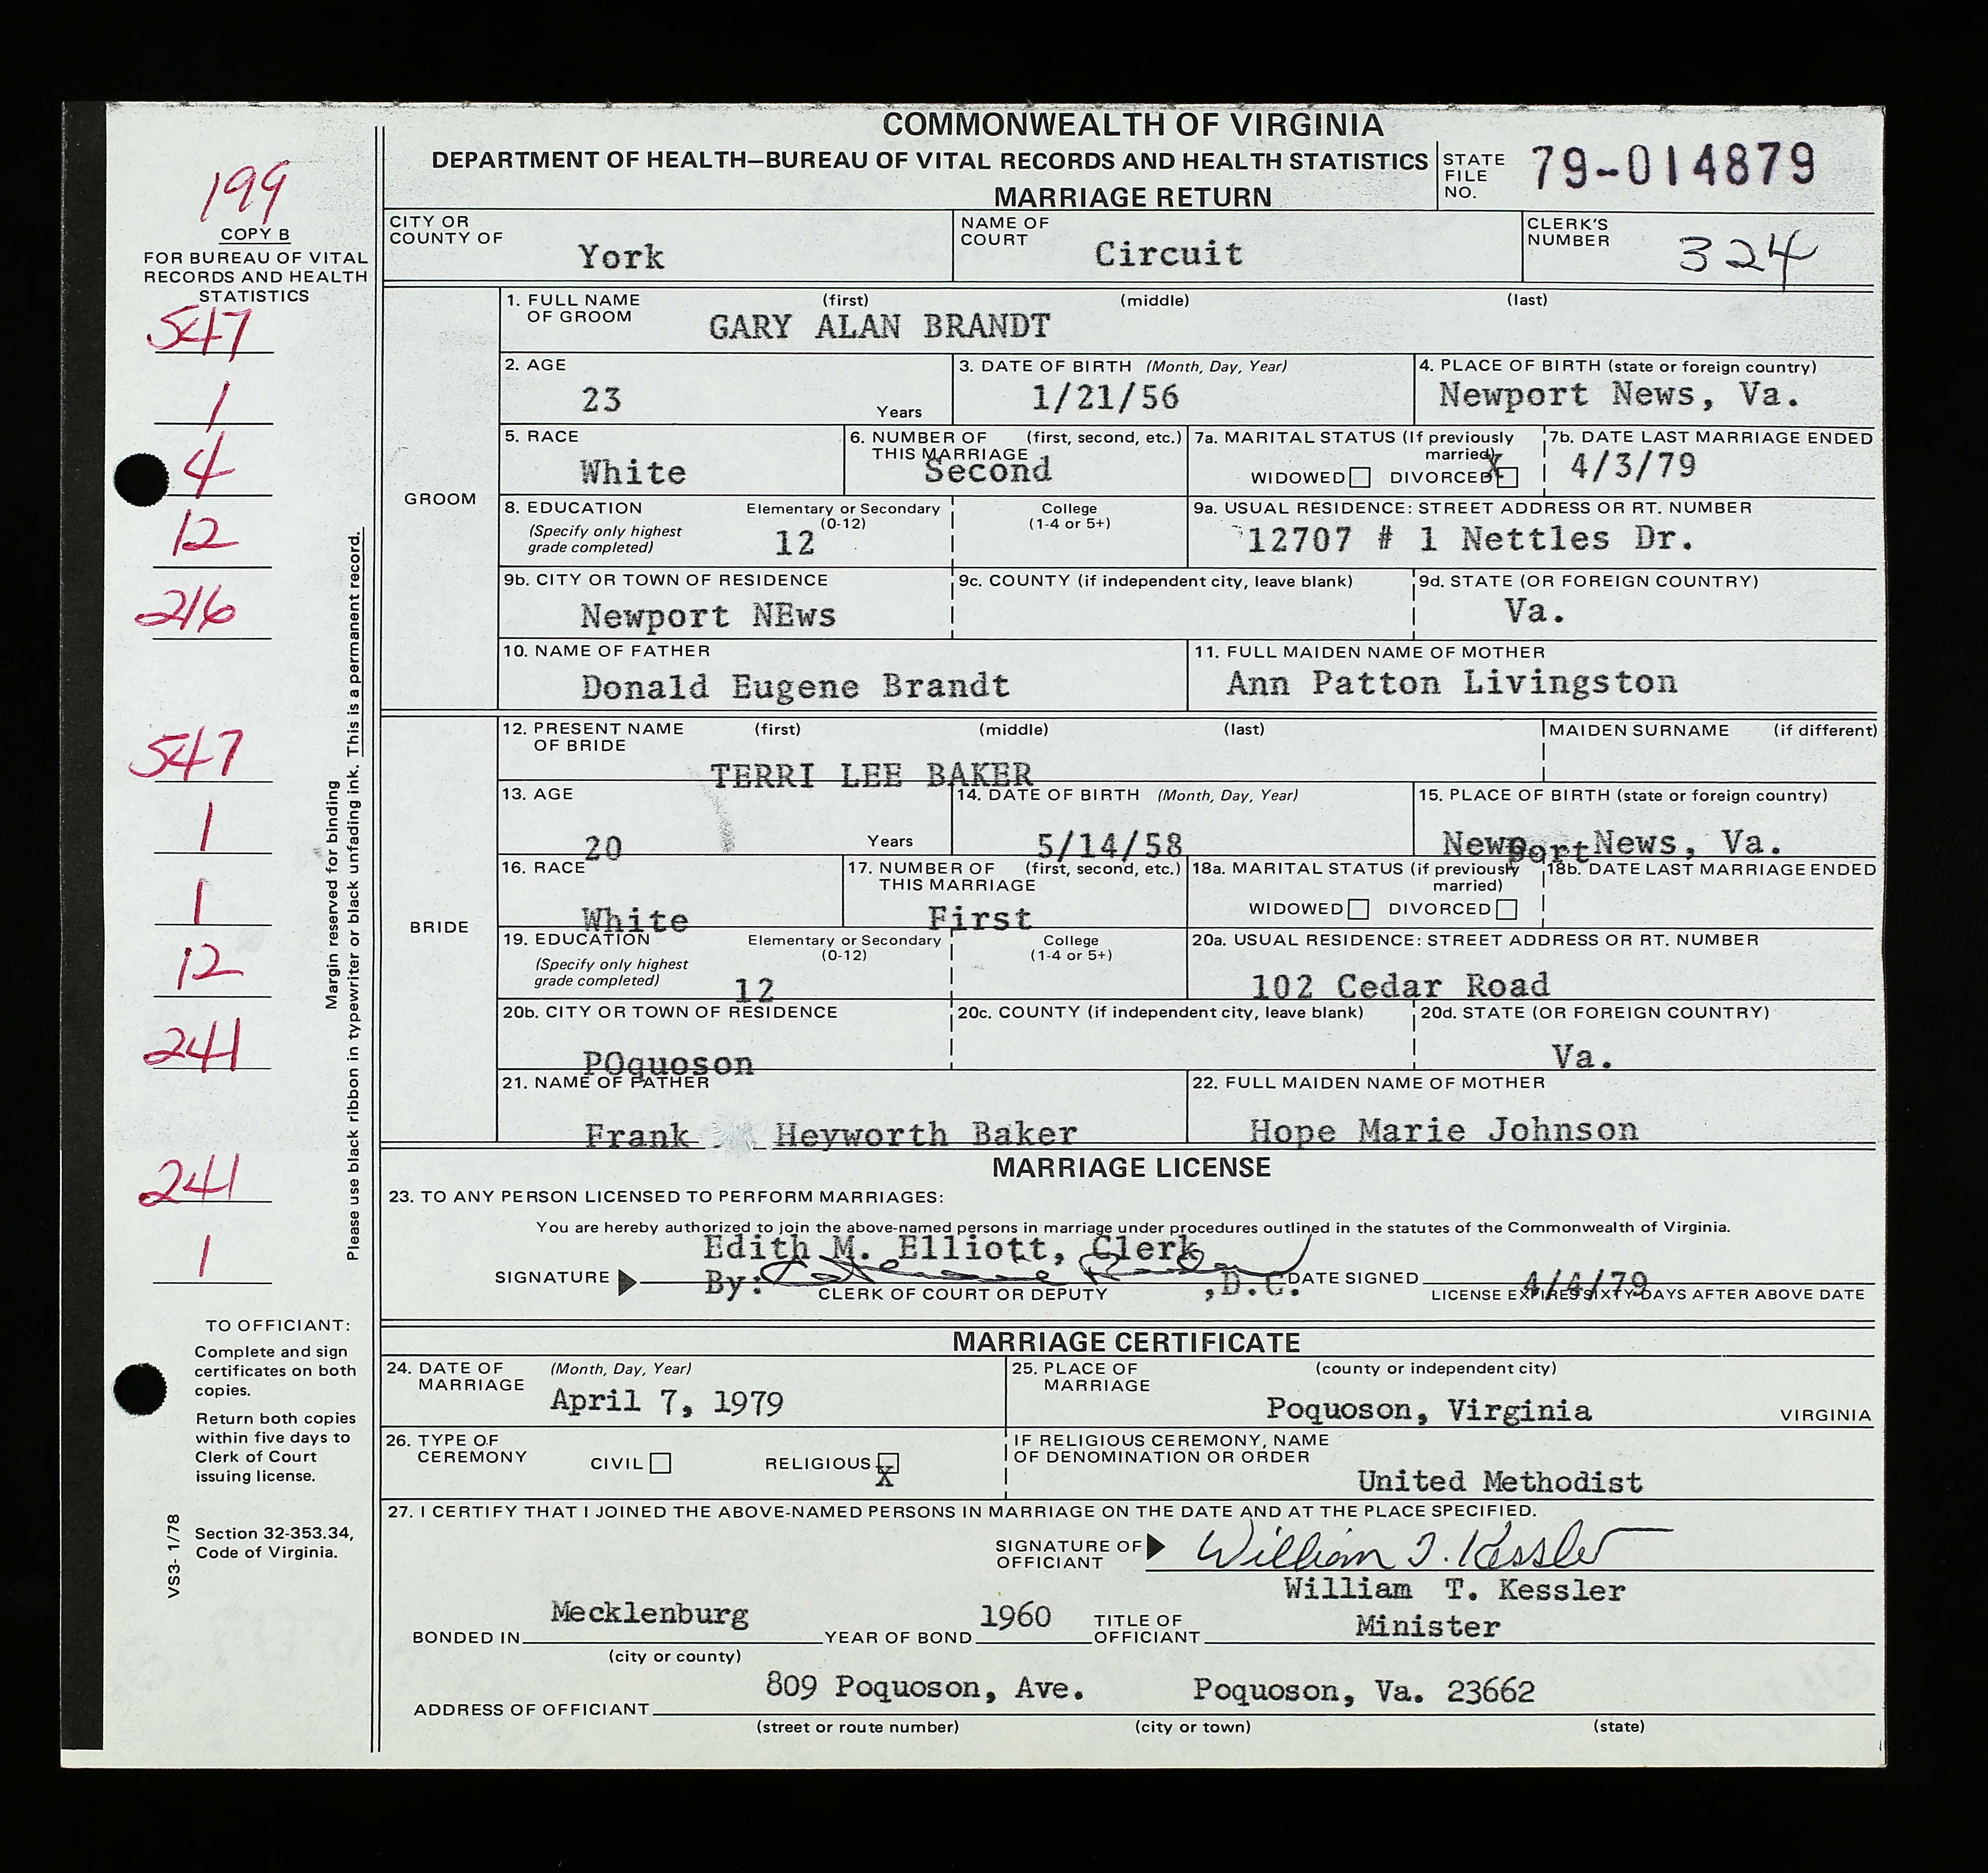 COMMONWEALTH OF VIRGINIA
DEPARTMENT OF HEALTH—BUREAU OF VITAL RECORDS AND HEALTH STATISTICS
MARRIAGE RETURN
STATE FILE NO. 79-014879
199
COPY B
FOR BUREAU OF VITAL
RECORDS AND HEALTH
STATISTICS
547
1
4
12
216
547
1
1
12
241
241
1
Margin reserved for binding
Please use black ribbon in typewriter or black unfading ink. This is a permanent record.
TO OFFICIANT:
Complete and sign
certificates on both
copies.
Return both copies
within five days to
Clerk of Court
issuing license.
Section 32-353.34,
Code of Virginia.
VS3- 1/78
CITY OR COUNTY OF York
NAME OF COURT Circuit
CLERK'S NUMBER 324
GROOM
1. FULL NAME OF GROOM (first) (middle) (last)
GARY ALAN BRANDT
2. AGE 23 Years
3. DATE OF BIRTH (Month, Day, Year) 1/21/56
4. PLACE OF BIRTH (state or foreign country) Newport News, Va.
5. RACE White
6. NUMBER OF THIS MARRIAGE (first, second, etc.) Second
7a. MARITAL STATUS (If previously married) WIDOWED DIVORCED X
7b. DATE LAST MARRIAGE ENDED 4/3/79
8. EDUCATION (Specify only highest grade completed) Elementary or Secondary (0-12) 12 College (1-4 or 5+)
9a. USUAL RESIDENCE: STREET ADDRESS OR RT. NUMBER 12707 # 1 Nettles Dr.
9b. CITY OR TOWN OF RESIDENCE Newport NEws
9c. COUNTY (if independent city, leave blank)
9d. STATE (OR FOREIGN COUNTRY) Va.
10. NAME OF FATHER Donald Eugene Brandt
11. FULL MAIDEN NAME OF MOTHER Ann Patton Livingston
BRIDE
12. PRESENT NAME OF BRIDE (first) (middle) (last) MAIDEN SURNAME (if different)
TERRI LEE BAKER
13. AGE 20 Years
14. DATE OF BIRTH (Month, Day, Year) 5/14/58
15. PLACE OF BIRTH (state or foreign country) Newport News, Va.
16. RACE White
17. NUMBER OF THIS MARRIAGE (first, second, etc.) First
18a. MARITAL STATUS (if previously married) WIDOWED DIVORCED
18b. DATE LAST MARRIAGE ENDED
19. EDUCATION (Specify only highest grade completed) Elementary or Secondary (0-12) 12 College (1-4 or 5+)
20a. USUAL RESIDENCE: STREET ADDRESS OR RT. NUMBER 102 Cedar Road
20b. CITY OR TOWN OF RESIDENCE POquoson
20c. COUNTY (if independent city, leave blank)
20d. STATE (OR FOREIGN COUNTRY) Va.
21. NAME OF FATHER Frank Heyworth Baker
22. FULL MAIDEN NAME OF MOTHER Hope Marie Johnson
MARRIAGE LICENSE
23. TO ANY PERSON LICENSED TO PERFORM MARRIAGES:
You are hereby authorized to join the above-named persons in marriage under procedures outlined in the statutes of the Commonwealth of Virginia.
Edith M. Elliott, Clerk
SIGNATURE By: ,D.C. DATE SIGNED 4/4/79
CLERK OF COURT OR DEPUTY LICENSE EXPIRES SIXTY DAYS AFTER ABOVE DATE
MARRIAGE CERTIFICATE
24. DATE OF MARRIAGE (Month, Day, Year) April 7, 1979
25. PLACE OF MARRIAGE (county or independent city) Poquoson, Virginia VIRGINIA
26. TYPE OF CEREMONY CIVIL RELIGIOUS X
IF RELIGIOUS CEREMONY, NAME OF DENOMINATION OR ORDER United Methodist
27. I CERTIFY THAT I JOINED THE ABOVE-NAMED PERSONS IN MARRIAGE ON THE DATE AND AT THE PLACE SPECIFIED.
SIGNATURE OF OFFICIANT William T. Kessler
William T. Kessler
BONDED IN Mecklenburg YEAR OF BOND 1960 TITLE OF OFFICIANT Minister
(city or county)
ADDRESS OF OFFICIANT 809 Poquoson, Ave. Poquoson, Va. 23662
(street or route number) (city or town) (state)